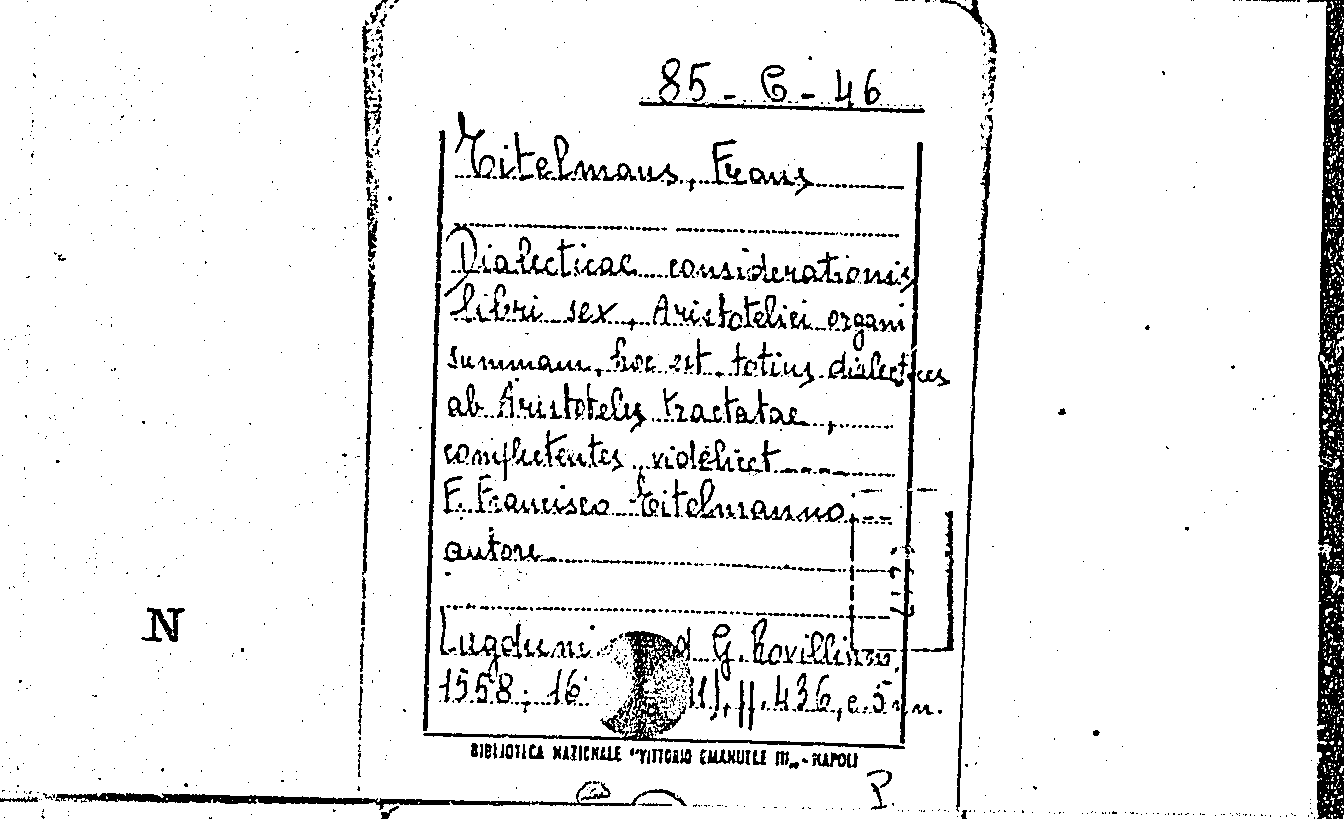 85 - C - 46
Titelmans, Frans
Dialecticae considerationis
libri sex, Aristotelici organi
summam, hoc est, totius dialectices
ab Aristotele tractatae,
complectentes videlicet
F. Francisco Titelmanno,
autore
Lugduni G. Rovillium,
1558; 16 436, e 5 n.
BIBLIOTECA NAZIONALE "VITTORIO EMANUELE III" - NAPOLI
N